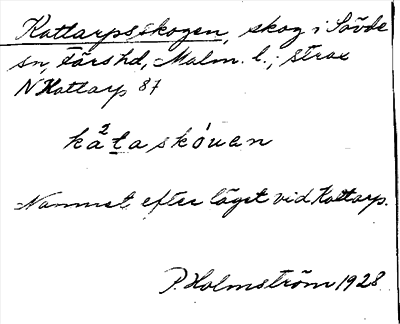 Kattarpsskogen, skog i Sövde
sn, Färs hd, Malm. l.; strax
N Kattarp 87
ka²taskóuan
Namnet efter läget vid Kattarp.
P. Holmström 1928